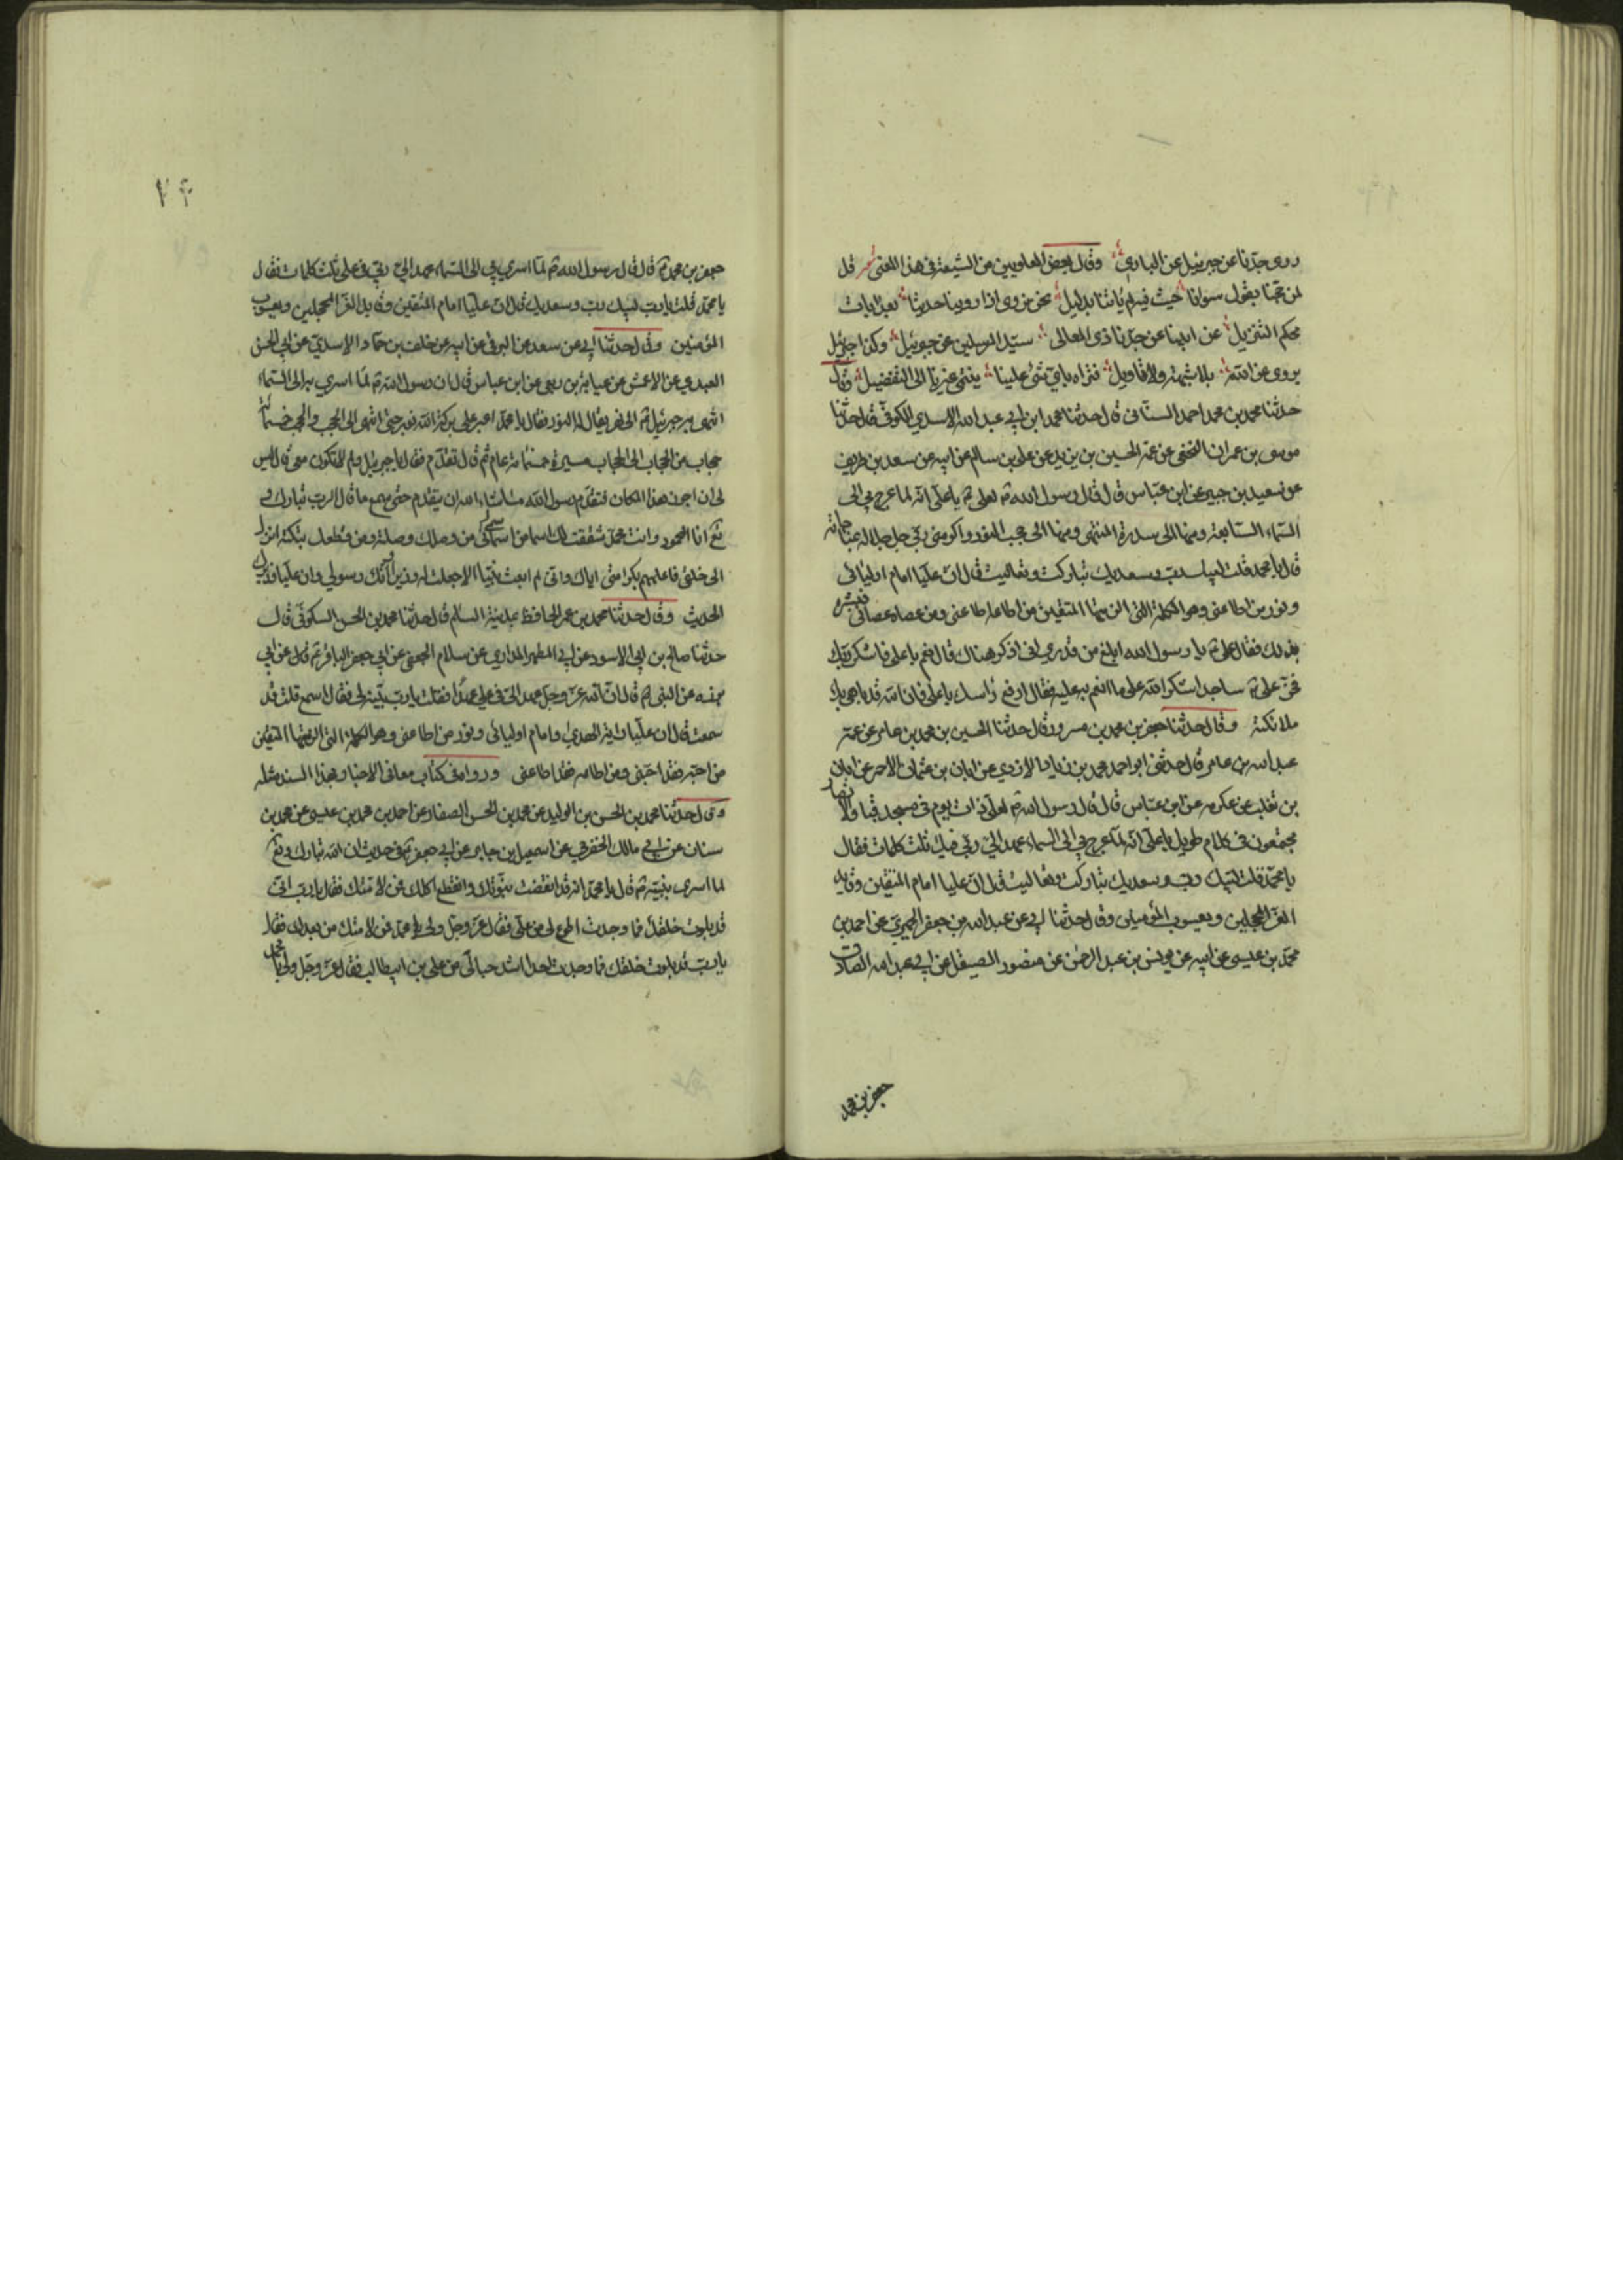 روى جدّنا عن جبرئيل عن الباري وقال بعض العلويين من الشيعة في هذا المعنى شعر قل
لمن حجنا بقول سوانا حيث فيه لم يأتنا بدليل نحن نروي اذا روينا حديثا بعد ايات
محكم التنزيل عن ابينا عن جدّنا ذي المعالي سيّد المرسلين عن جبرئيل وكذا جبرئيل
يروي عن الله بلا شبهة ولا تأويل فتراه باي شئ علينا ينتمي غيرنا الى التفضيل وقال
حدثنا محمد بن محمد احمد السناني قال حدثنا محمد ابن ابي عبد الله الاسدي الكوفي قال حدثنا
موسى بن عمران النخعي عن عمه الحسين بن يزيد عن علي بن سالم عن ابيه عن سعد بن طريف
عن سعيد بن جبير عن ابن عباس قال قال رسول الله ص لعلي ع يا علي انه لما عرج بي الى
السماء السابعة ومنها الى سدرة المنتهى ومنها الى حجب النور واكرمني ربي جل جلاله بمناجاته
قال يا محمد قلت لبيك رب وسعديك تباركت وتعاليت قال ان عليا امام اوليائي
ونور من اطاعني وهو الكلمة التي الزمتها المتقين من اطاعه اطاعني ومن عصاه عصاني فبشره
بذلك فقال علي ع يا رسول الله ابلغ من قدري اني اذكر هناك قال نعم يا علي فاشكر ربك
فخر علي ع ساجدا شكرا لله على ما انعم به عليه فقال ارفع راسك يا علي فان الله قد باهى بك
ملائكته وقال حدثنا جعفر بن محمد بن مسرور قال حدثنا الحسين بن محمد بن عامر عن عمه
عبد الله بن عامر قال حدثني ابو احمد محمد بن زياد الازدي عن ابان بن عثمان الاحمر عن ابان
بن تغلب عن عكرمه عن ابن عباس قال قال رسول الله ص لعلي ذات يوم في مسجد قبا والانصار
مجتمعون في كلام طويل يا علي انه لما عرج بي الى السماء عهد الي ربي فيك ثلث كلمات فقال
يا محمد قلت لبيك رب وسعديك تباركت وتعاليت قال ان عليا امام المتقين وقايد
الغر المحجلين ويعسوب المؤمنين وقال حدثنا ابي عن عبد الله بن جعفر الحميري عن احمد بن
محمد بن عيسى عن ابيه عن يونس بن عبد الرحمن عن منصور الصيقل عن ابي عبد الله الصادق
جعفر بن محمد
۷۴
جعفر بن محمد ع قال قال رسول الله ص لما اسري بي الى السماء عهد الي ربي في علي ثلث كلمات فقال
يا محمد قلت يا رب لبيك رب وسعديك قال ان عليا امام المتقين وقايد الغر المحجلين ويعسوب
المؤمنين وقال حدثنا ابي عن سعد عن البرقي عن ابيه عن خلف بن حماد الاسدي عن ابي الحسن
العبدي عن الاعمش عن عباية بن ربعي عن ابن عباس قال ان رسول الله ص لما اسري به الى السماء
انتهى به جبرئيل ع الى نهر يقال له النور فقال يا محمد اعبر على بركة الله فعبر حتى انتهى الى الحجب والحجب خمسمائة
حجاب من الحجاب الى الحجاب مسيرة خمسمائة عام ثم قال تقدم فقال يا جبرئيل ولم لا تكون معي قال ليس
لي ان اجوز هذا المكان فتقدم رسول الله ما شاء الله ان يتقدم حتى سمع ما قال الرب تبارك و
تعالى انا المحمود وانت محمد شققت لك اسما من اسمائي فمن وصلك وصلته ومن قطعك بتكته انزل
الى خلقي فاعلمهم بكرامتي اياك واني لم ابعث نبيا الا جعلت له وزيرا وانك رسولي وان عليا وزيرك
الحديث وقال حدثنا محمد بن عمر الحافظ بمدينة السلام قال حدثنا محمد بن الحسن السكوني قال
حدثنا صالح بن ابي الاسود عن ابي المطهر المداري عن سلام الجعفي عن ابي جعفر الباقر ع قال عن ابي
برزه عن النبي ص قال ان الله عز وجل عهد الي في علي عهدا فقلت يا رب بينه لي فقال اسمع قلت قد
سمعت قال ان عليا راية الهدى وامام اوليائي ونور من اطاعني وهو الكلمة التي الزمتها المتقين
من احبه فقد احبني ومن اطاعه فقد اطاعني ورواه في كتاب معاني الاخبار بهذا السند مثله
وقال حدثنا محمد بن الحسن بن الوليد عن محمد بن الحسن الصفار عن احمد بن محمد بن عيسى عن محمد بن
سنان عن ابي مالك الحضرمي عن اسمعيل بن جابر عن ابي جعفر ع في حديث ان الله تبارك وتع
لما اسرى بنبيه ص قال يا محمد انه قد انقضت نبوتك وانقطع اكلك فمن لامتك فقال يا رب اني
قد بلوت خلقك فما وجدت اطوع لي من علي فقال عز وجل ولي يا محمد فمن لامتك من بعدك فقال
يا رب قد بلوت خلقك فما وجدت احدا اشد حبا لي من علي بن ابيطالب فقال عز وجل ولي يا محمد